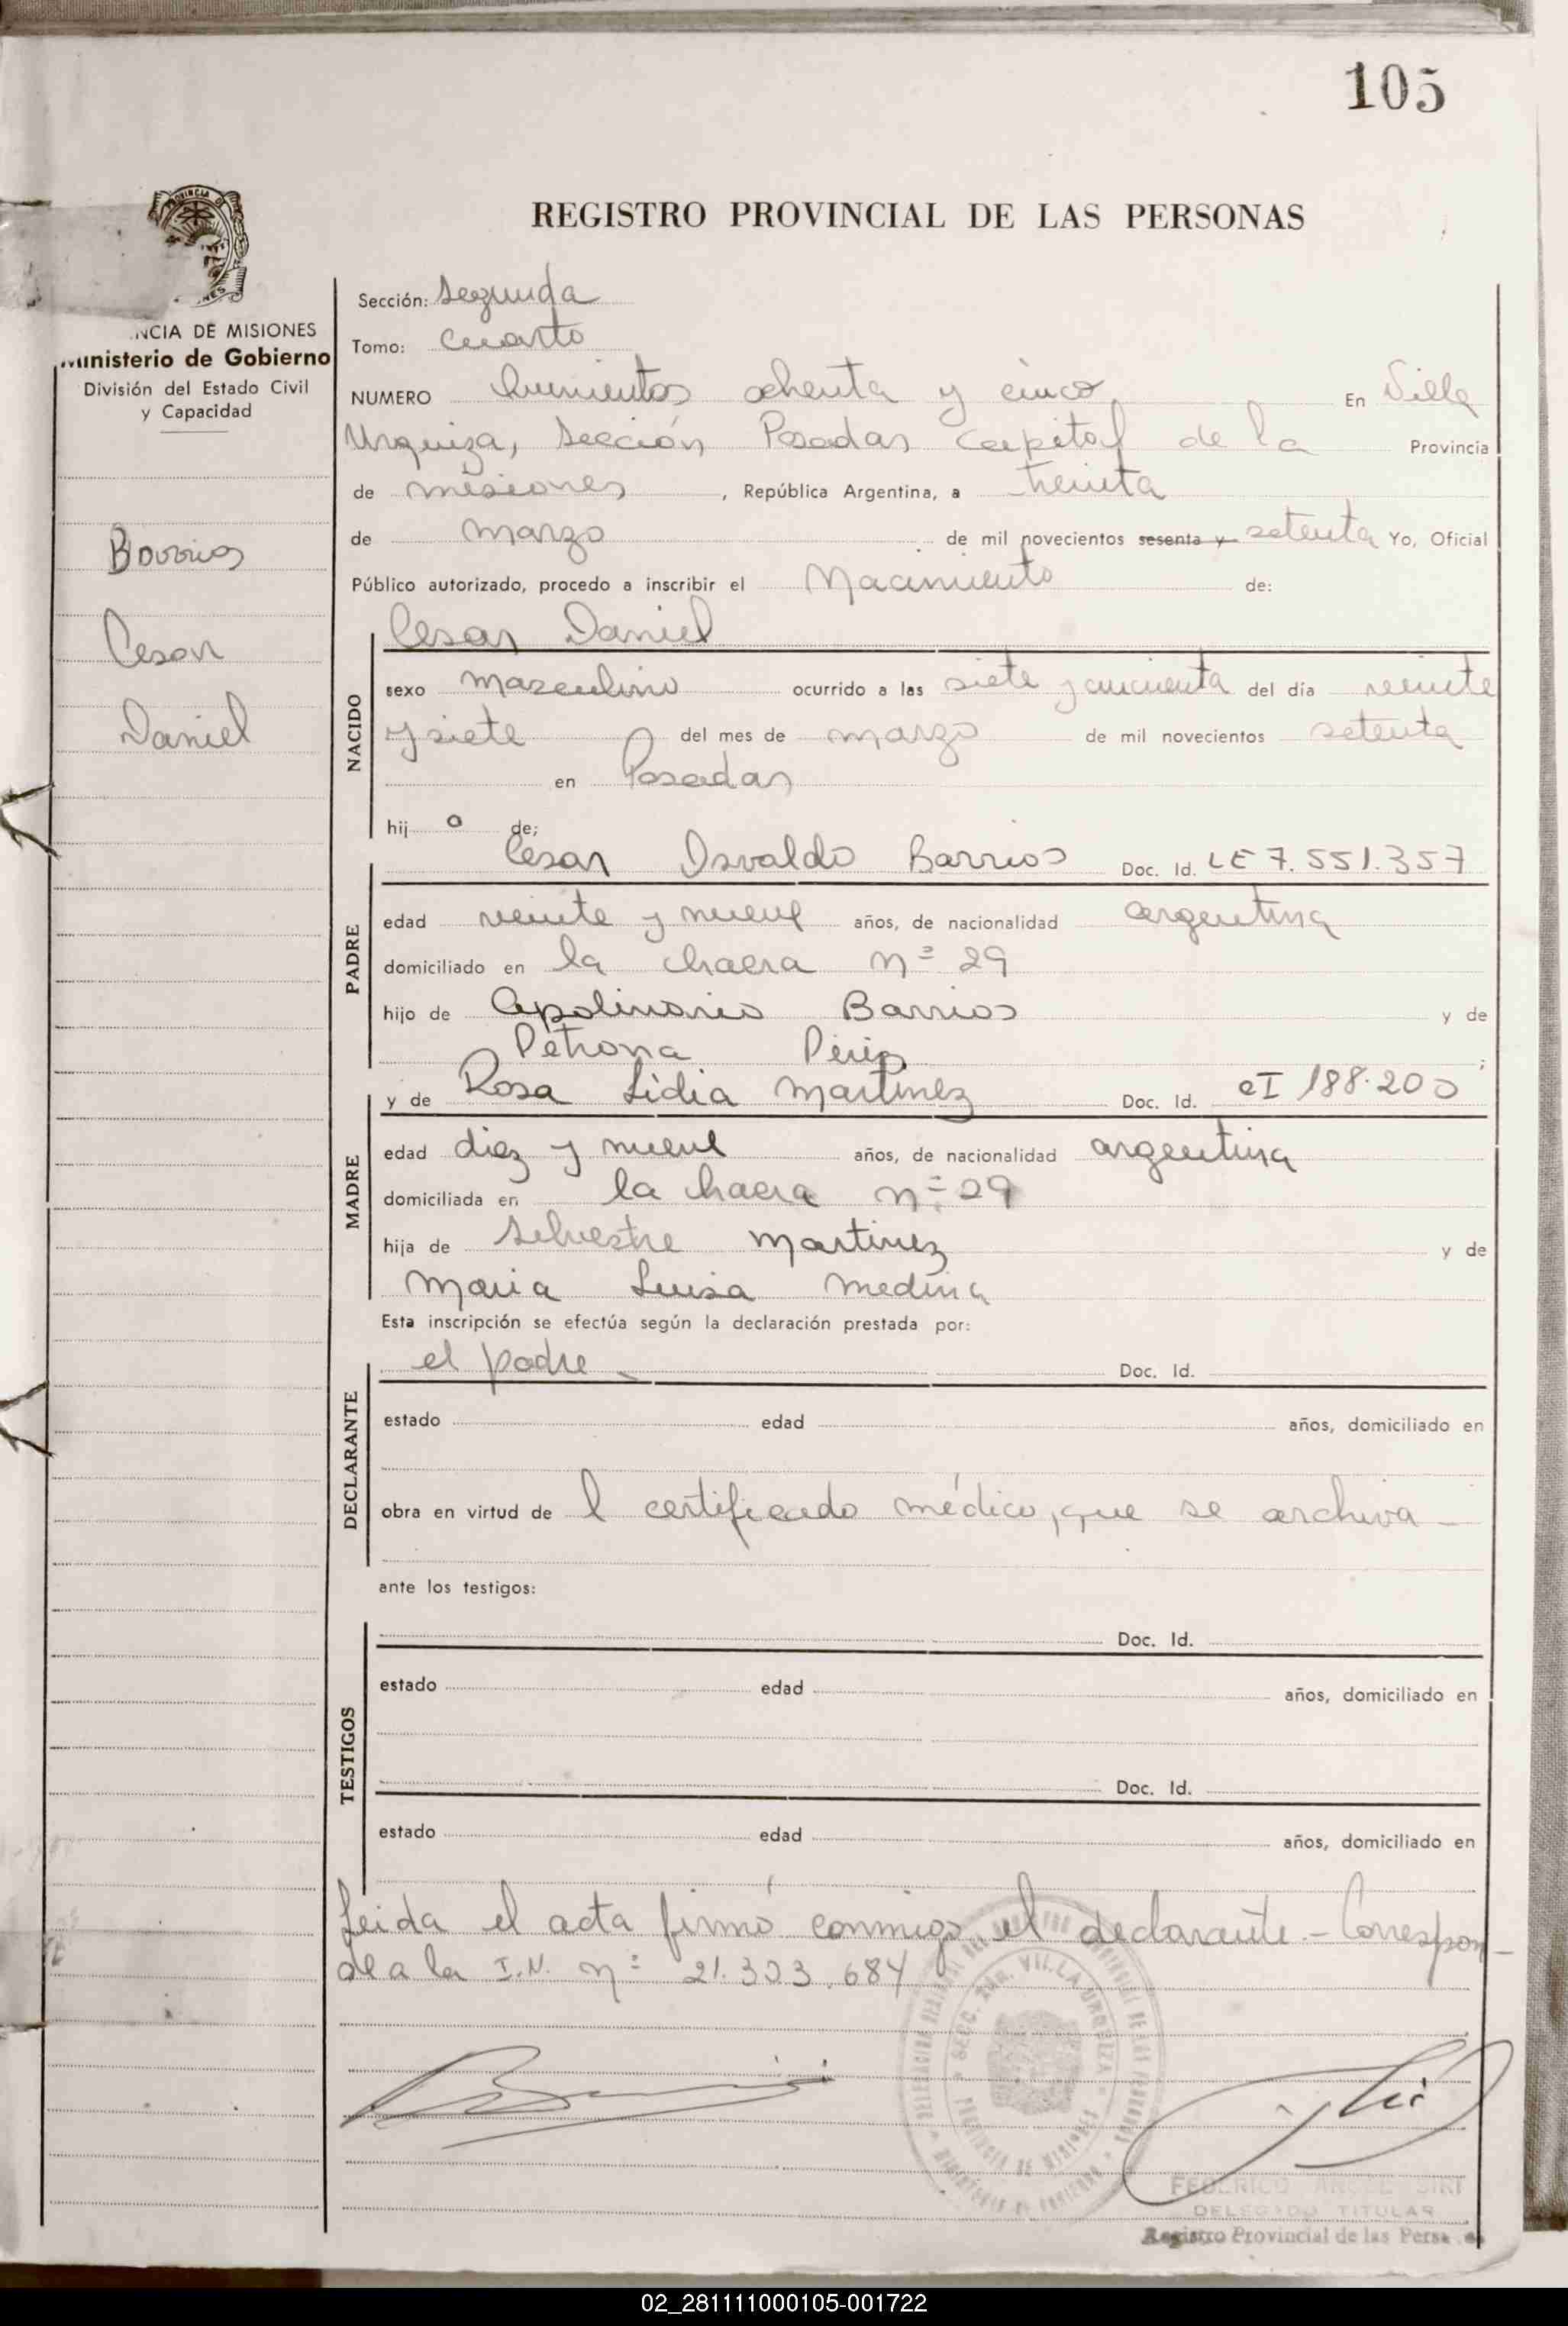 105
REGISTRO PROVINCIAL DE LAS PERSONAS
NCIA DE MISIONES
Ministerio de Gobierno
División del Estado Civil
y Capacidad
Barrios
Cesar
Daniel
Sección: Segunda
Tomo: Cuarto
NUMERO ochenta y cinco En Villa
Urquiza, Sección Posadas Capital de la Provincia
de misiones, República Argentina, a treinta
de marzo de mil novecientos sesenta y setenta Yo, Oficial
Público autorizado, procedo a inscribir el Nacimiento de:
Cesar Daniel
NACIDO
sexo masculino ocurrido a las siete y cincuenta del día veinte
y siete del mes de marzo de mil novecientos setenta
en Posadas
hij o de;
Cesar Osvaldo Barrios Doc. Id. LE 7.551.357
PADRE
edad veinte y nueve años, de nacionalidad argentina
domiciliado en la chacra nº 29
hijo de Apolinario Barrios y de
Petrona ;
y de Rosa Lidia Martinez Doc. Id. CI 188.200
MADRE
edad diez y nueve años, de nacionalidad argentina
domiciliada en la chacra nº 29
hija de Silvestre Martinez y de
Maria Luisa Medina
Esta inscripción se efectúa según la declaración prestada por:
el padre Doc. Id.
DECLARANTE
estado edad años, domiciliado en
obra en virtud de l certificado médico, que se archiva -
ante los testigos:
Doc. Id.
TESTIGOS
estado edad años, domiciliado en
Doc. Id.
estado edad años, domiciliado en
Leida el acta firmó conmigo el declarante.- Correspon-
de a la I.N. nº 21.303.684
SECC. 2da. VILLA URQUIZA
PROVINCIA DE MISIONES
FEDERICO ANGEL SIRI
DELEGADO TITULAR
Registro Provincial de las Personas
02_281111000105-001722